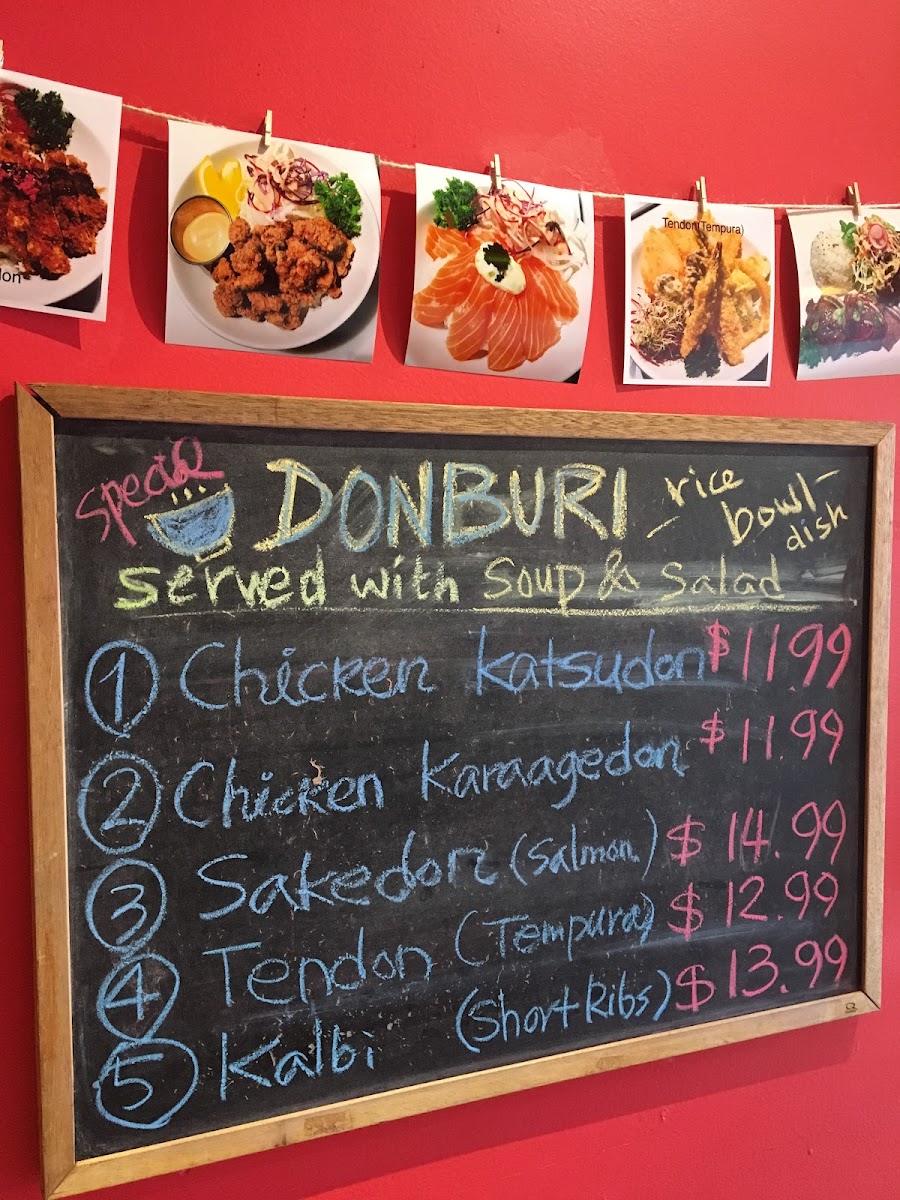 don
Tendon(Tempura)
Special DONBURI -rice bowl- dish
served with Soup & Salad
1 Chicken Katsudon $11.99
2 Chicken Karaagedon $11.99
3 Sakedon (Salmon) $14.99
4 Tendon (Tempura) $12.99
5 Kalbi (Short Ribs) $13.99